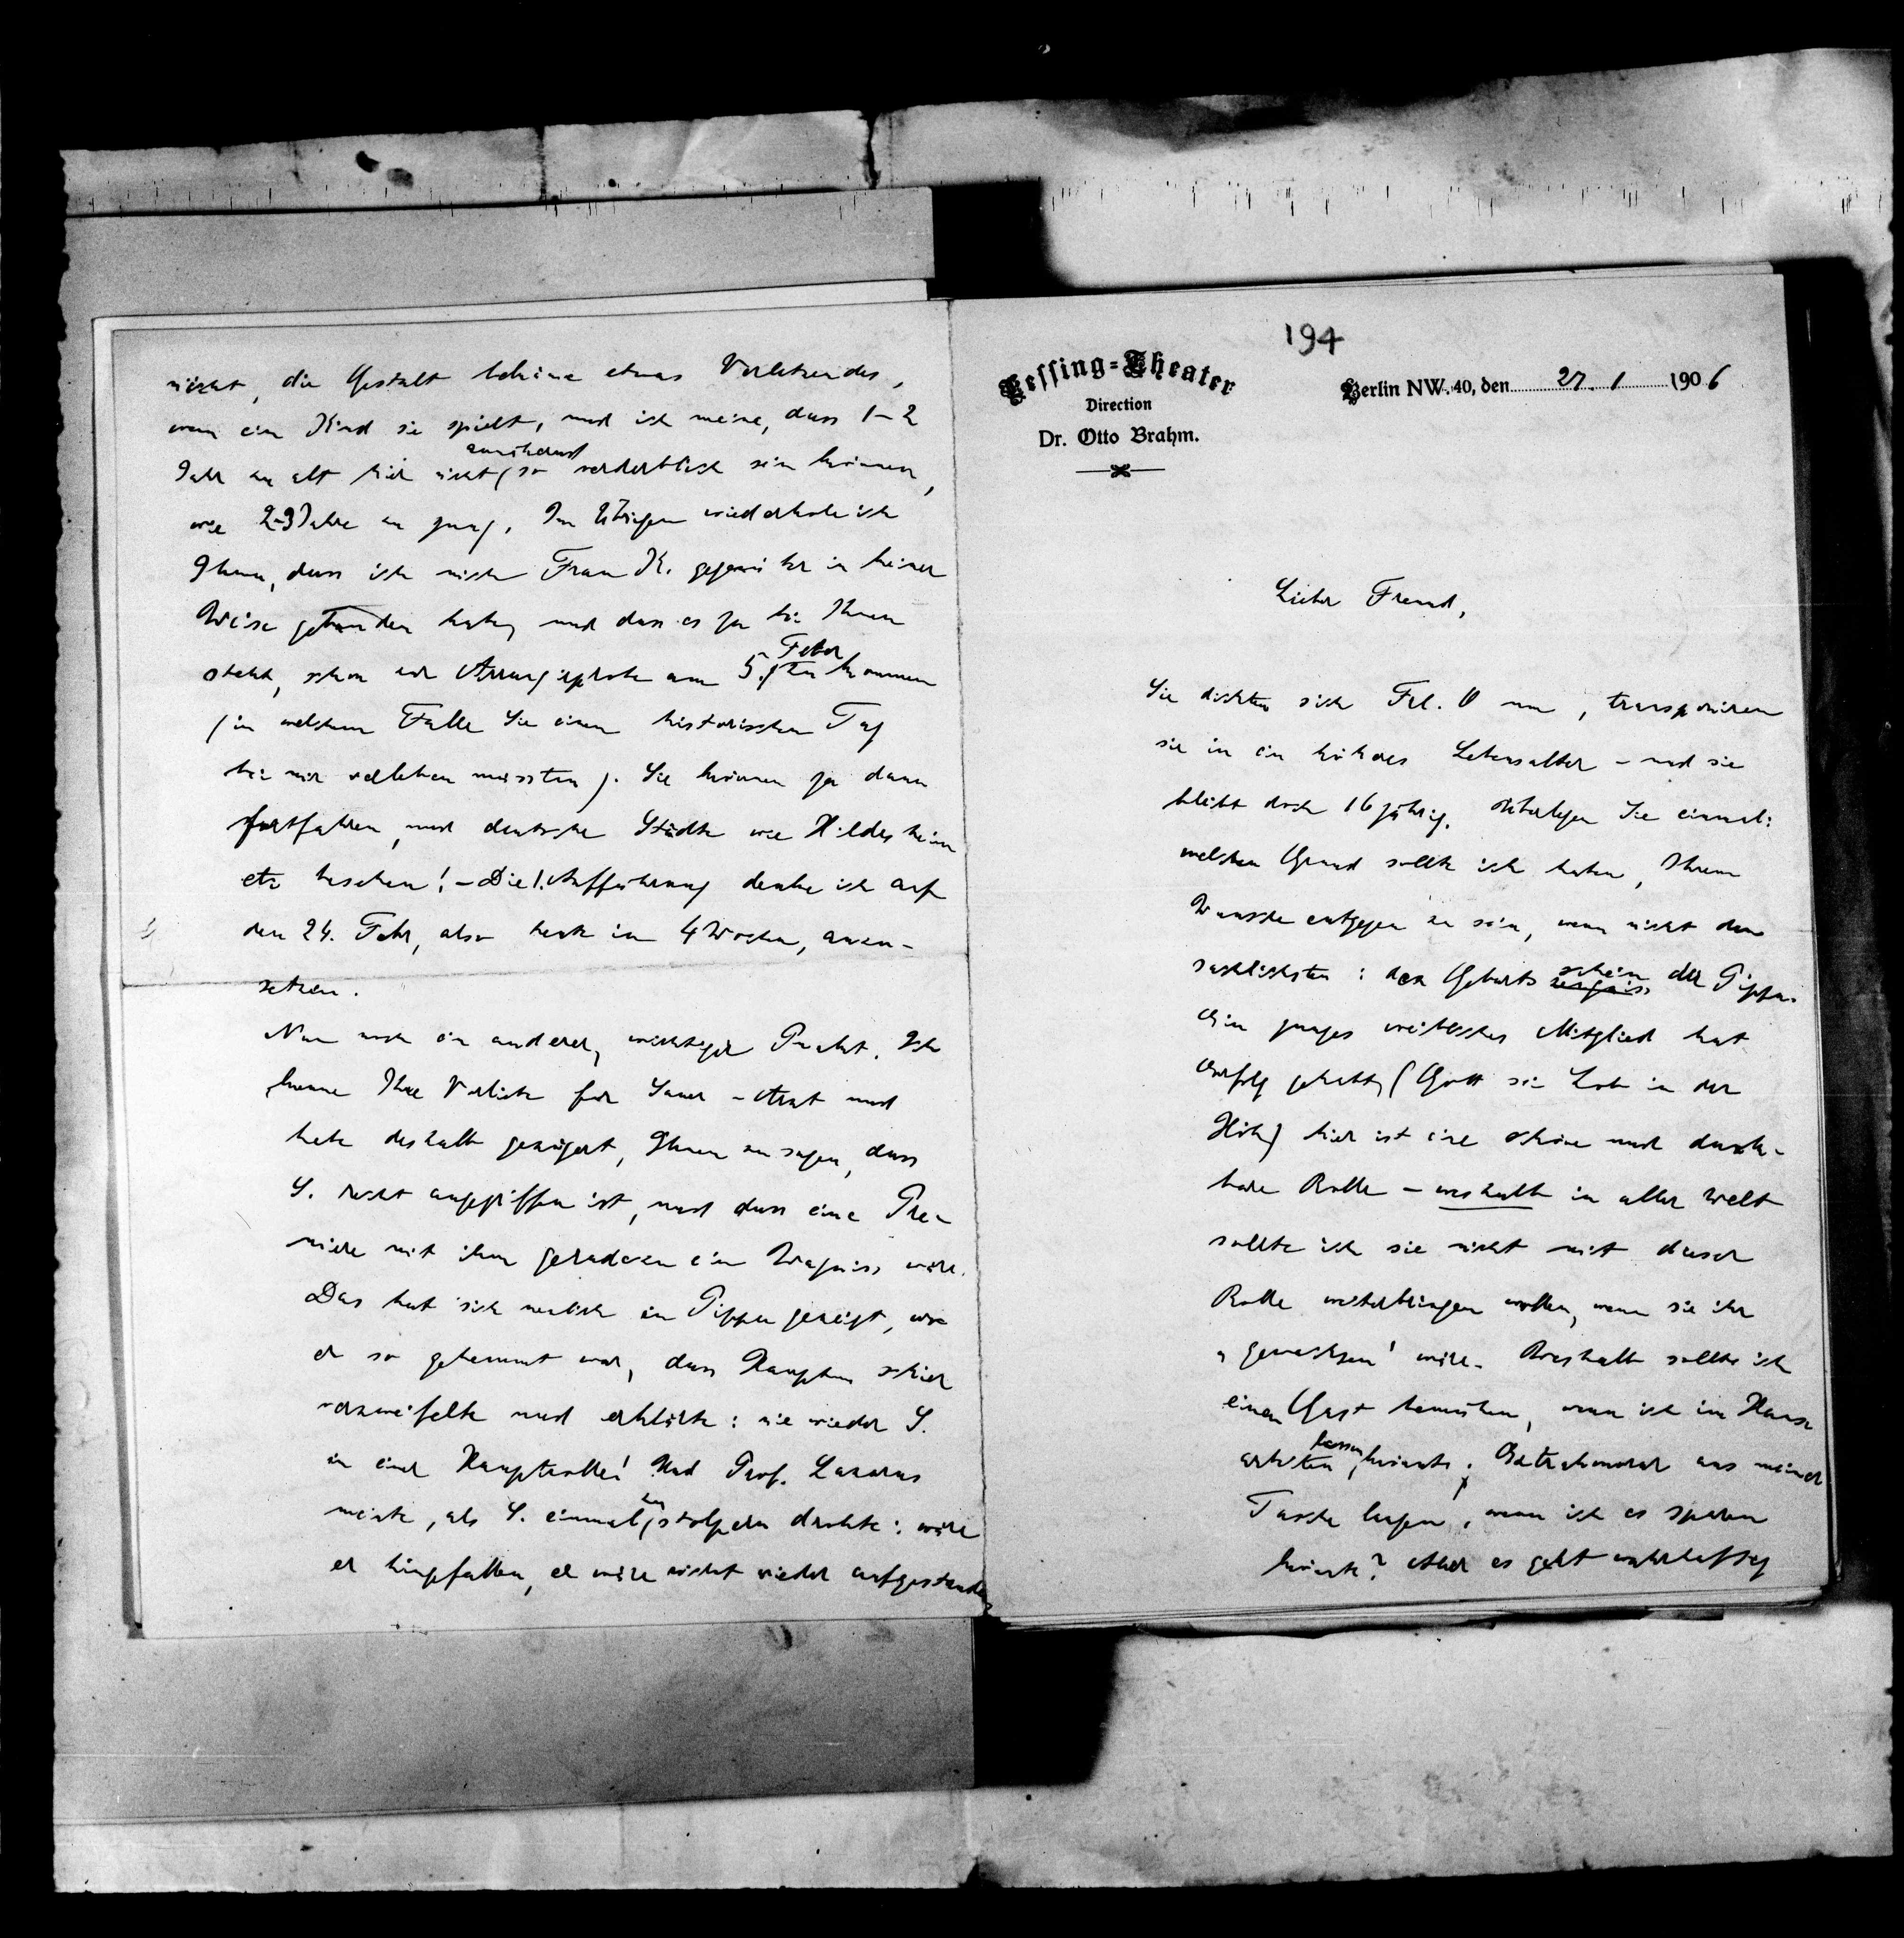 nicht, die Gestalt bekäme etwas Verletzendes,
wenn ein Kind sie spielt, und ich meine, dass 1–2
Jahr zu alt hier nicht annähernd so verderblich sein können,
wie 2–3 Jahre zu jung. Im Übrigen wiederhole ich
Ihnen, dass ich mich Frau K. gegenüber in keiner
Weise gebunden habe, und dass es ja bei Ihnen
steht, schon zur Arrangirprobe am 5. Febr zu kommen
(in welchem Falle Sie einen historischen Tag
bei mir verleben müssten). Sie können ja dann
fortfahren, und deutsche Städte wie Hildesheim
etc besehen! – Die 1. Aufführung denke ich auf
den 24. Febr, also heut in 4 Wochen, anzu-
setzen.
Nun noch ein anderer, wichtiger Punkt. Ich
kenne Ihre Vorliebe für Sauer – Arzt und
habe deshalb gezögert, Ihnen zu sagen, dass
S. recht angegriffen ist, und dass eine Pre-
mière mit ihm geradezu ein Wagniss wäre.
Das hat sich neulich in Pippa gezeigt, wo
er so gehemmt war, dass Hauptm schier
verzweifelte und erklärte: nie wieder S.
in einer Hauptrolle! Und Prof. Lazarus
meinte, als S. einmal zu stolpern drohte: wäre
er hingefallen, er wäre nicht wieder aufgestanden
194
Lessing-Theater
Direction
Dr. Otto Brahm.
Berlin NW. 40, den 27. 1 1906
Lieber Freund,
Sie dichten sich Frl. O um, transponiren
sie in ein höheres Lebensalter – und sie
bleibt doch 16 jährig. Überlegen Sie einmal:
welchen Grund sollte ich haben, Ihrem
Wunsche entgegen zu sein, wenn nicht den
sachlichsten: den Geburtsschein der Pippa.
Ein junges weibliches Mitglied hat
Erfolg gehabt, (Gott sei Lob in der
Höh) hier ist eine schöne und dank-
bare Rolle – weshalb in aller Welt
sollte ich sie nicht mit dieser
Rolle weiterbringen wollen, wenn sie ihr
„gewachsen" wäre. Weshalb sollte ich
einen Gast bemühen, wenn ich im Hause
arbeiten lassen könnte, Extrahonorar aus meiner
Tasche legen, wenn ich es sparen
könnte? Aber es geht wahrhaftig